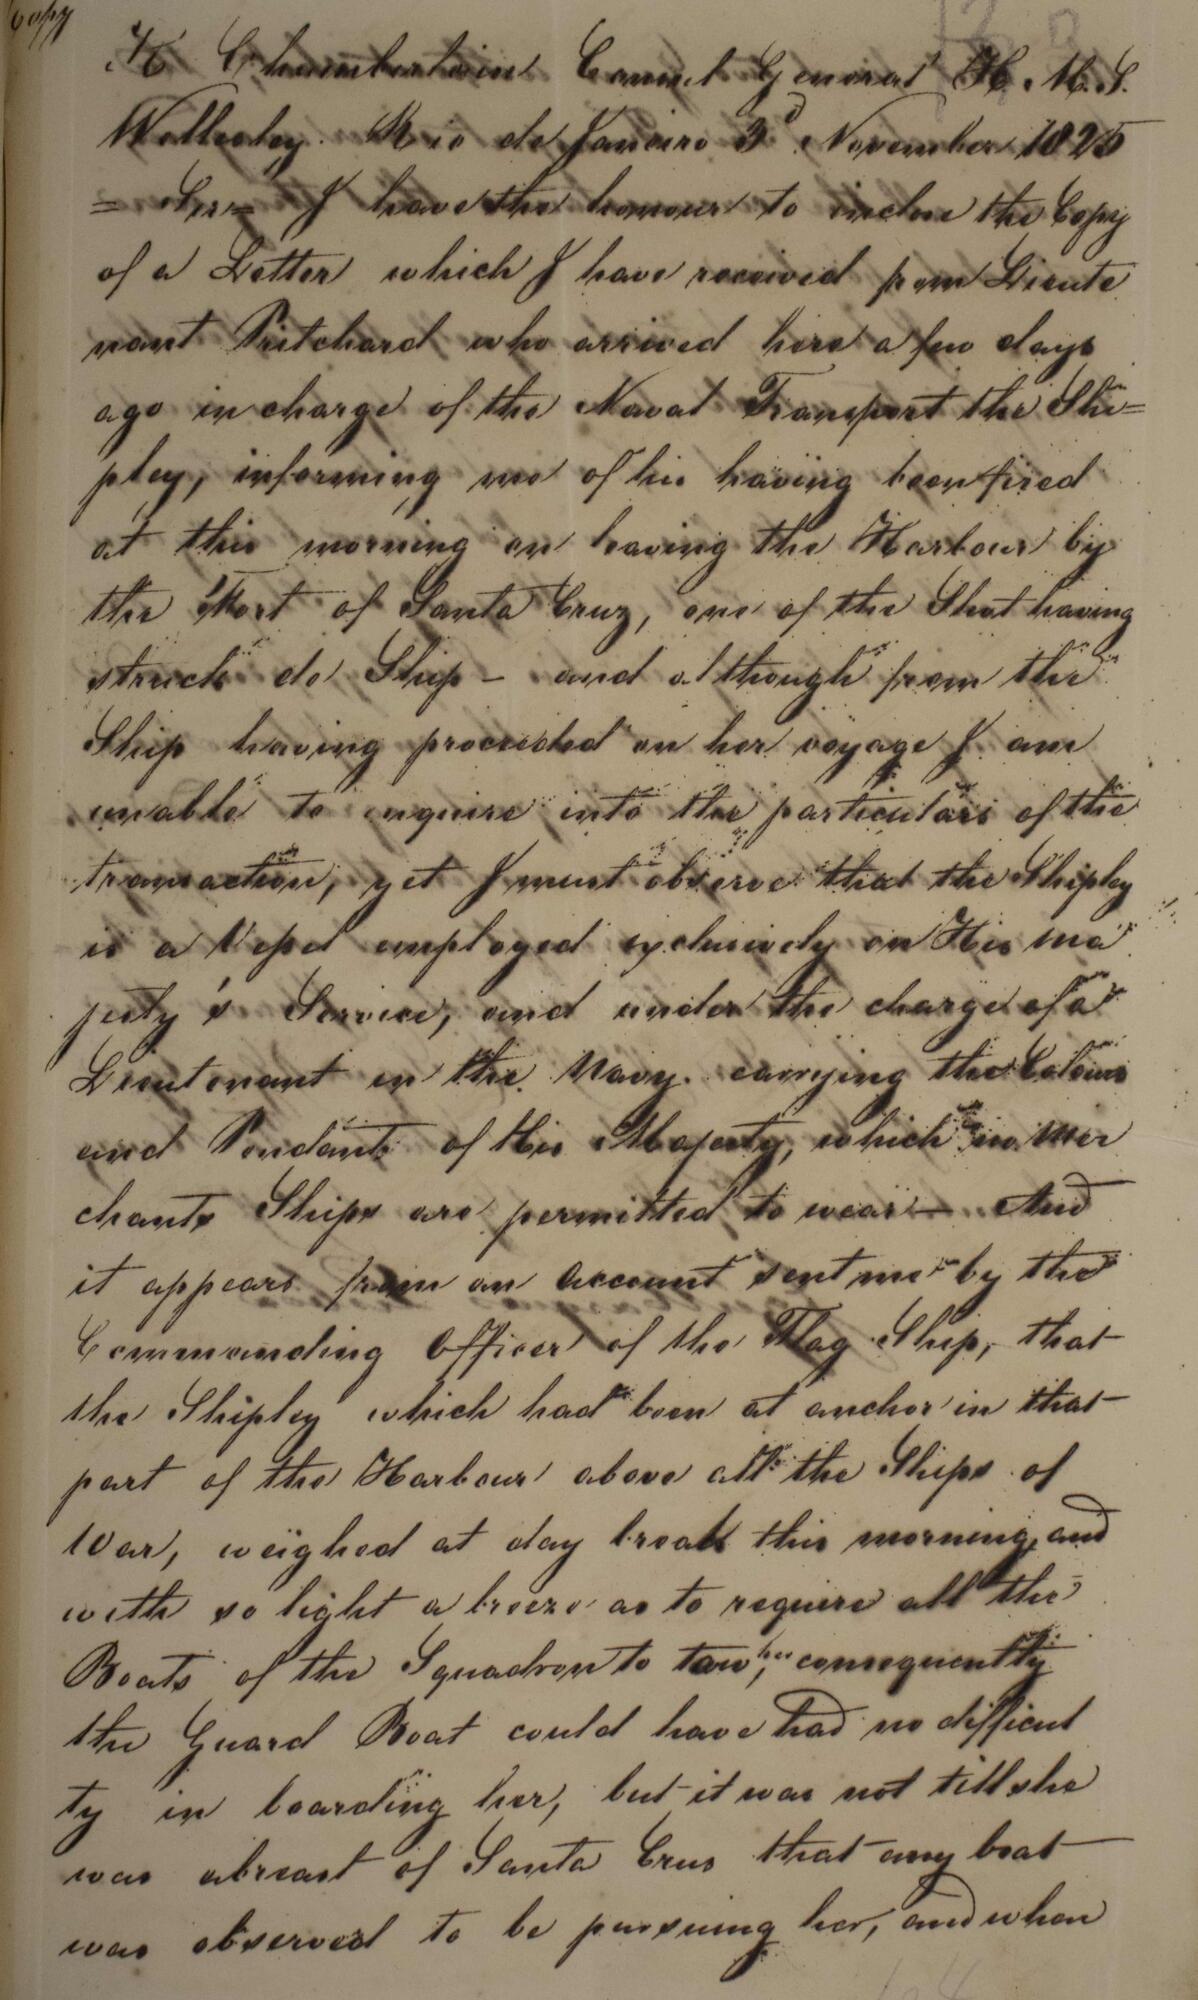 Copy
H Chamberlain Consul General H. M. S.
Wellesley. Rio de Janeiro 3d November 1825
= Sir = I have the honour to inclose the Copy
of a Letter which I have received from Lieute
nant Pritchard who arrived here a few days
ago in charge of the Naval Transport the Shi=
pley, informing me of his having been fired
at this morning on leaving the Harbour by
the Fort of Santa Cruz, one of the Shot having
struck do Ship - and although from the
Ship having proceeded on her voyage I am
unable to enquire into the particulars of the
transaction, yet I must observe that the Shipley
is a Vessel employed exclusively on His Ma
jesty's Service, and under the charge of a
Lieutenant in the Navy. carrying the Colours
and Pendant of His Majesty, which no Mer
chants Ships are permitted to wear — And
it appears from an account sent me by the
Commanding Officer of the Flag Ship, that
the Shipley which had been at anchor in that
part of the Harbour above all the Ships of
War, weighed at day break this morning, and
with so light a breeze as to require all the
Boats of the Squadron to tow her, consequently
the Guard Boat could have had no difficul
ty in boarding her, but it was not till she
was abreast of Santa Crus that any boat
was observed to be pursuing her, and when